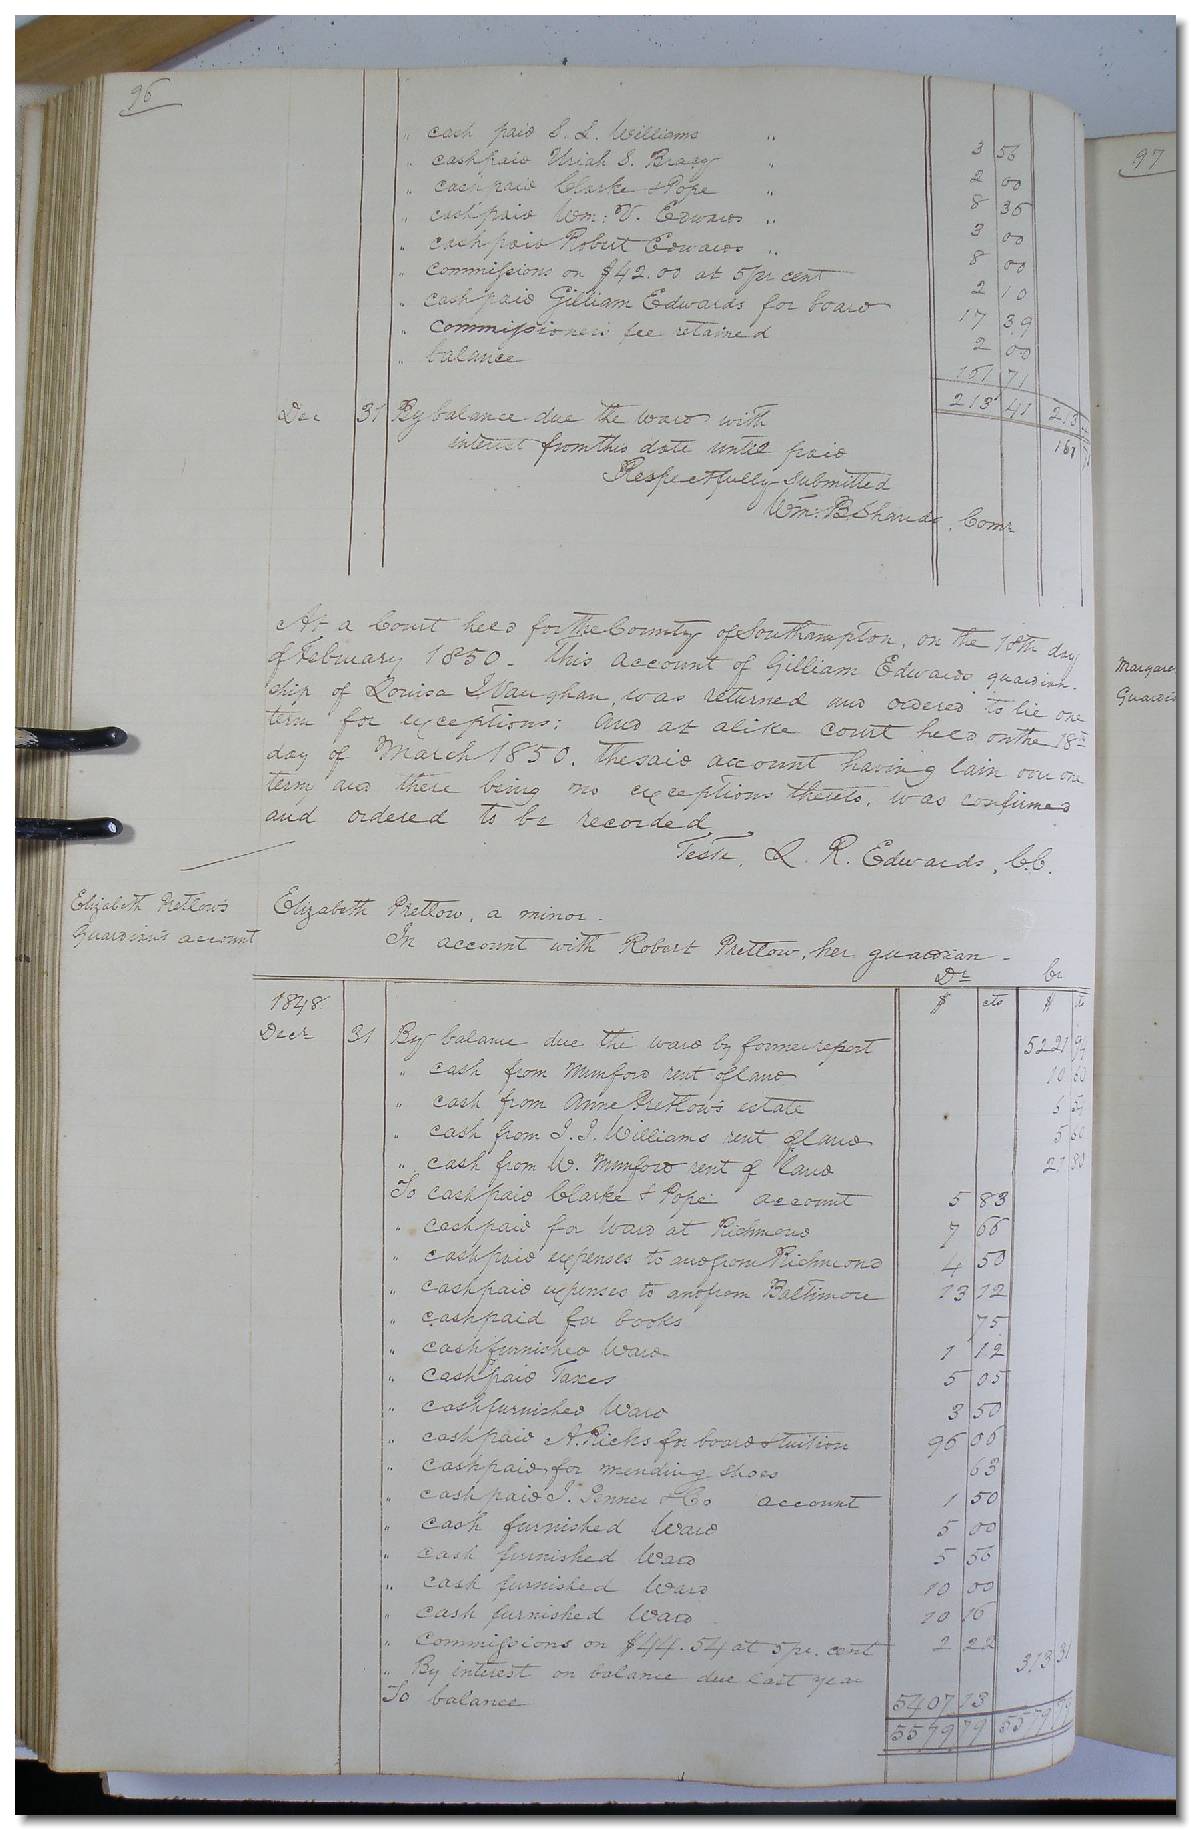 96
" cash paid S. L. Williams " 3 56
" cash paid Uriah S. Bragg " 2 00
" cash paid Clarke & Pope " 8 36
" cash paid Wm: V. Edwards " 3 00
" cash paid Robert Edwards " 8 00
" commissions on $42.00 at 5 pr cent 2 10
" cash paid Gilliam Edwards for board 17 39
" commissioners fee retained 2 00
" balance 161 71
213 41 213
Dec 31 By balance due the ward with
interest from this date until paid 161
Respectfully Submitted
Wm: B Shands, Comr
At a Court held for the County of Southampton, on the 18th day
of February 1850. This account of Gilliam Edwards guardian-
ship of Louisa J Vaughan, was returned and ordered to lie one
term for exceptions: And at alike court held on the 18th
day of March 1850. The said account having lain over one
term and there being no exceptions thereto, was confirmed
and ordered to be recorded
Teste, L. R. Edwards, C.C.
Elizabeth Pretlow's
Guardian's account
Elizabeth Pretlow, a minor.
In account with Robert Pretlow, her guardian -
Dr Cr
1848 $ cts $ cts
Decr 31 By balance due the ward by former report 5221 97
" cash from Mumford rent of land 10 50
" cash from Anne Pretlow's estate 6
" cash from J. J. Williams rent of land 5 60
" cash from W. Mumford rent of land 21 80
To cash paid Clarke & Pope account 5 83
" cash paid for Ward at Richmond 7 66
" cash paid expenses to and from Richmond 4 50
" cash paid expenses to and from Baltimore 13 12
" cash paid for books 75
" cash furnished Ward 1 12
" cash paid Taxes 5 05
" cash furnished Ward 3 50
" cash paid A. Ricks for board & tuition 96 06
" cash paid for mending shoes 63
" cash paid J. Jenner & Co account 1 50
" cash furnished Ward 5 00
" cash furnished Ward 5 56
" cash furnished Ward 10 00
" cash furnished Ward 10 16
" commissions on $44.54 at 5 pr. cent 2 22
" By interest on balance due last year 313 31
To balance 5407 13
5579 79 5579 79
97
Margare
Guardia